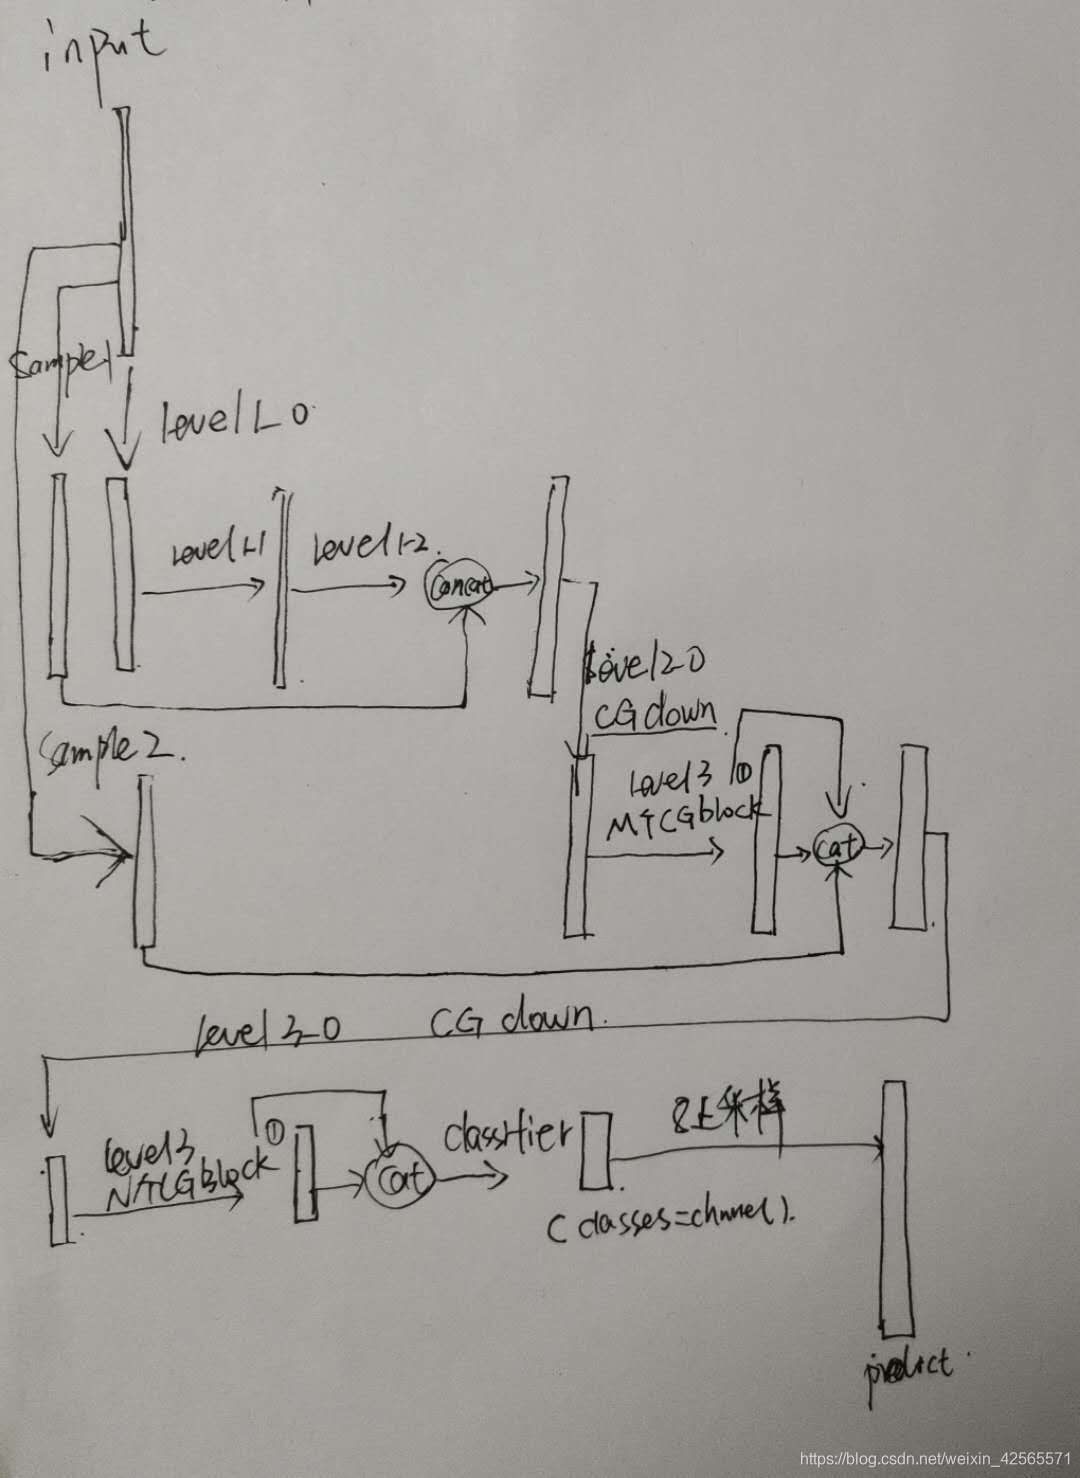 input
Sample1
level1_0
level1-1
level1-2.
Concat
level2-0
CG down
Sample 2.
level3
①
M*CGblock
cat
level 3_0 CG down.
level3
①
N*CGBlock
Cat
classifier
8上采样
( classes=chnnel ).
predict.
https://blog.csdn.net/weixin_42565571